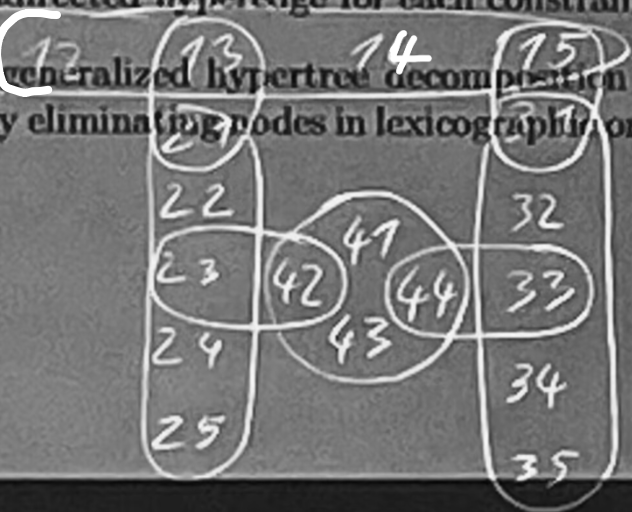 directed hyperedge for each constrain
12 13 14 15
generalized hypertree decomposition
y eliminating nodes in lexicographic or
21 31
22 32
41
23 42 44 33
43
24 34
25 35